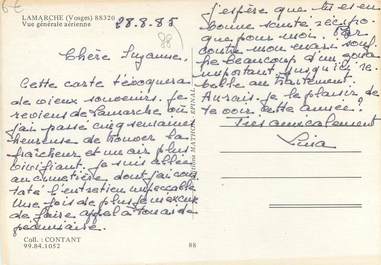 6€
LAMARCHE (Vosges) 88320
Vue générale aérienne
28.8.85
88
Chère Suzanne.
Cette carte t'évoquera
de vieux souvenirs. Je
reviens de Lamarche où
j'ai passé cinq semaines
heureuse de trouver la
fraîcheur et un air plus
vivifiant. Je suis allée
au cimetière dont j'ai cons
taté l'entretien impeccable
Une fois de plus je m'excuse
de faire appel à
Coll. : CONTANT
99.84.1052
88
MATHON - EPINAL
J'espère que tu es en
bonne santé récipro
que pour moi. Par
contre mon mari souf
fre beaucoup d'un
important jusqu'ici re
belle au traitement
Aurais-je le plaisir de
te voir cette année?
Très amicalement